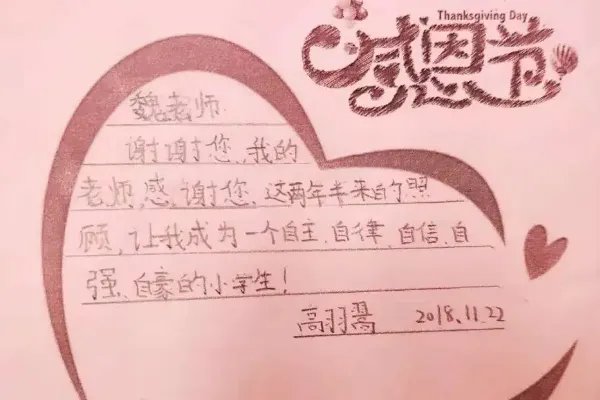 Thanksgiving Day
感恩节
魏老师
谢谢您,我的
老师,感谢您,这两年半来的照
顾,让我成为一个自主、自律、自信、自
强、自豪的小学生!
高羽翯 2018.11.22